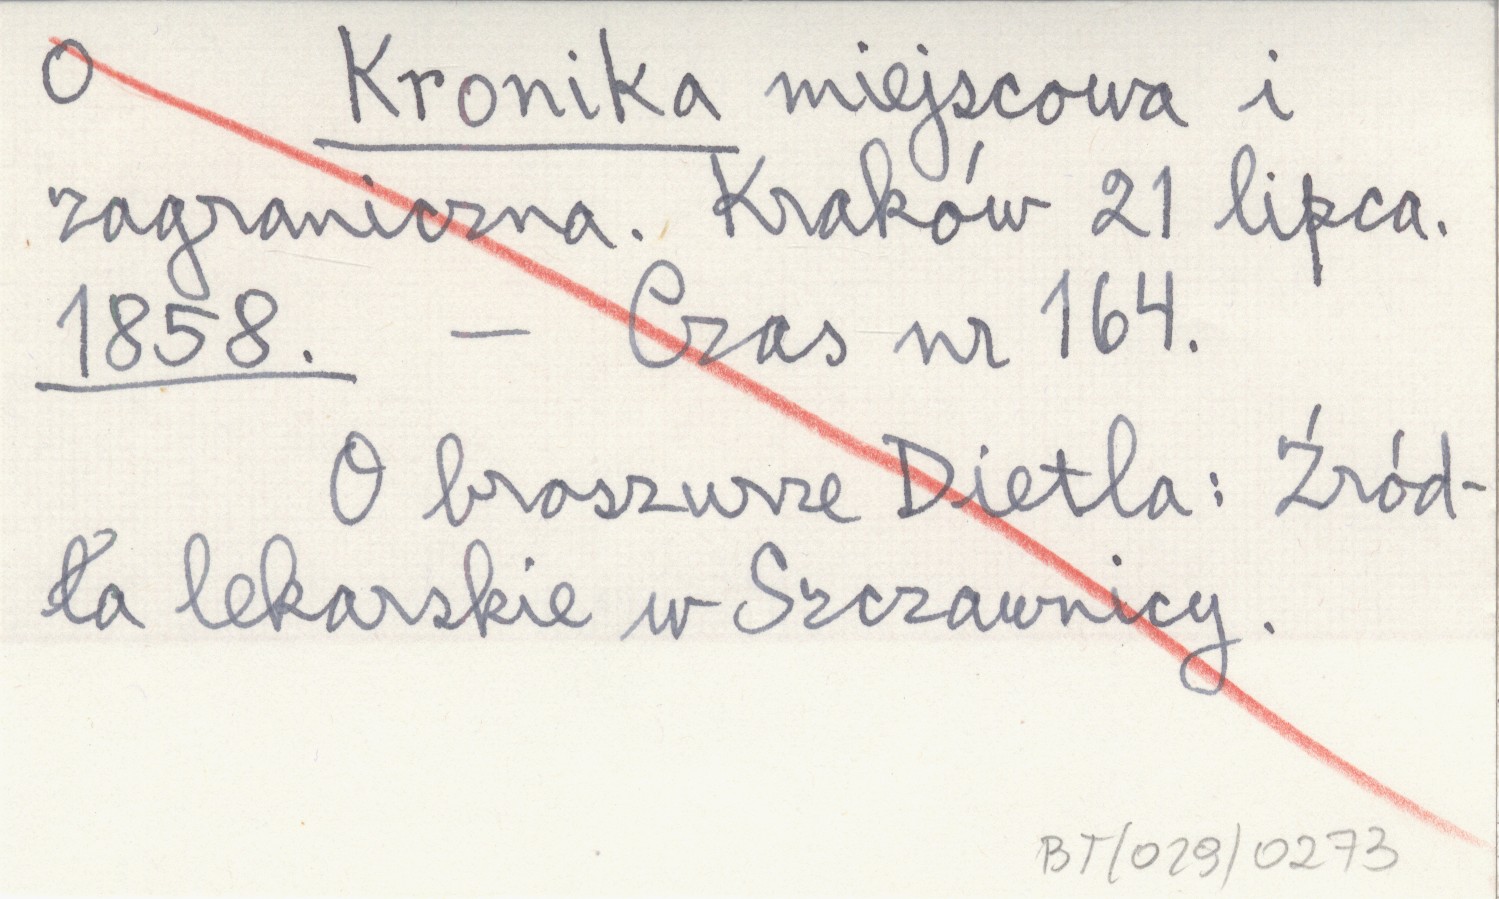 O Kronika miejscowa i
zagraniczna. Kraków 21 lipca.
1858. — Czas nr 164.
O broszurze Dietla: Źród-
ła lekarskie w Szczawnicy.
BT/029/0273